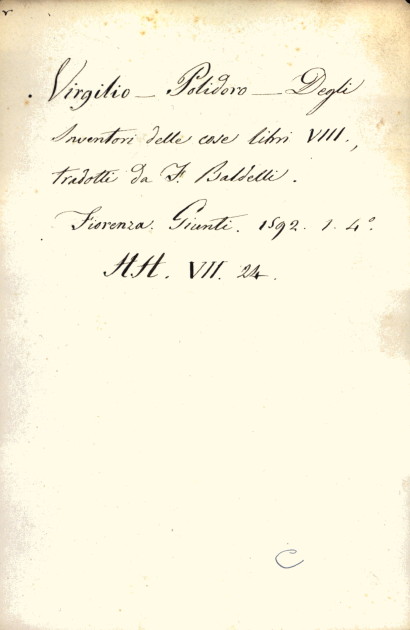 Virgilio — Polidoro — Degli
Inventori delle cose libri VIII.,
tradotti da F. Baldelli.
Fiorenza. Giunti. 1592. 1. 4º.
AA. VII. 24.
C